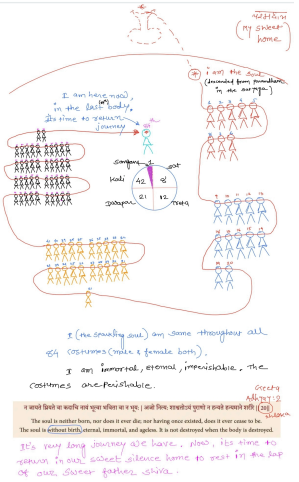 परमधाम
(My sweet
home)
I am the soul
(descended from paramdham
in the satyuga)
I am here now,
in the last body.
(84th)
Its time to return
journey
Sangam 1
Sat
Kali
42
8
21
12
Dwapar
Treta
I (the sparkling soul) am same throughout all
84 costumes (male & female both).
I am immortal, eternal, imperishable. The
costumes are perishable.
Geeta
Adhyay: 2
न जायते म्रियते वा कदाचि नायं भूत्वा भविता वा न भूयः | अजो नित्यः शाश्वतोऽयं पुराणो न हन्यते हन्यमाने शरीरे || 20||
shloka
The soul is neither born, nor does it ever die; nor having once existed, does it ever cease to be.
The soul is without birth, eternal, immortal, and ageless. It is not destroyed when the body is destroyed.
It's very long journey we have. Now, its time to
return in our sweet silence home to rest in the lap
of our sweet father shiva.